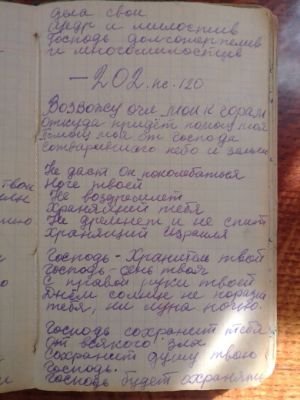 дела свои
Щедр и милостив
Господь долготерпелив
и многомилостив
— 202. пс. 120
Возвожу очи мои к горам
Откуда придёт помощь моя
Помощь моя от господа
сотворившего небо и землю
Не даст Он поколебаться
Ноге твоей
Не воздремлет
Хранящий тебя
Не дремлет и не спит
Хранящий Израиля
Господь - Хранитель твой
Господь - сень твоя
С правой руки твоей
Днём солнце не поразит
тебя, ни луна ночью.
Господь сохранит тебя
от всякого зла
Сохранит душу твою
Господь.
Господь будет охранять